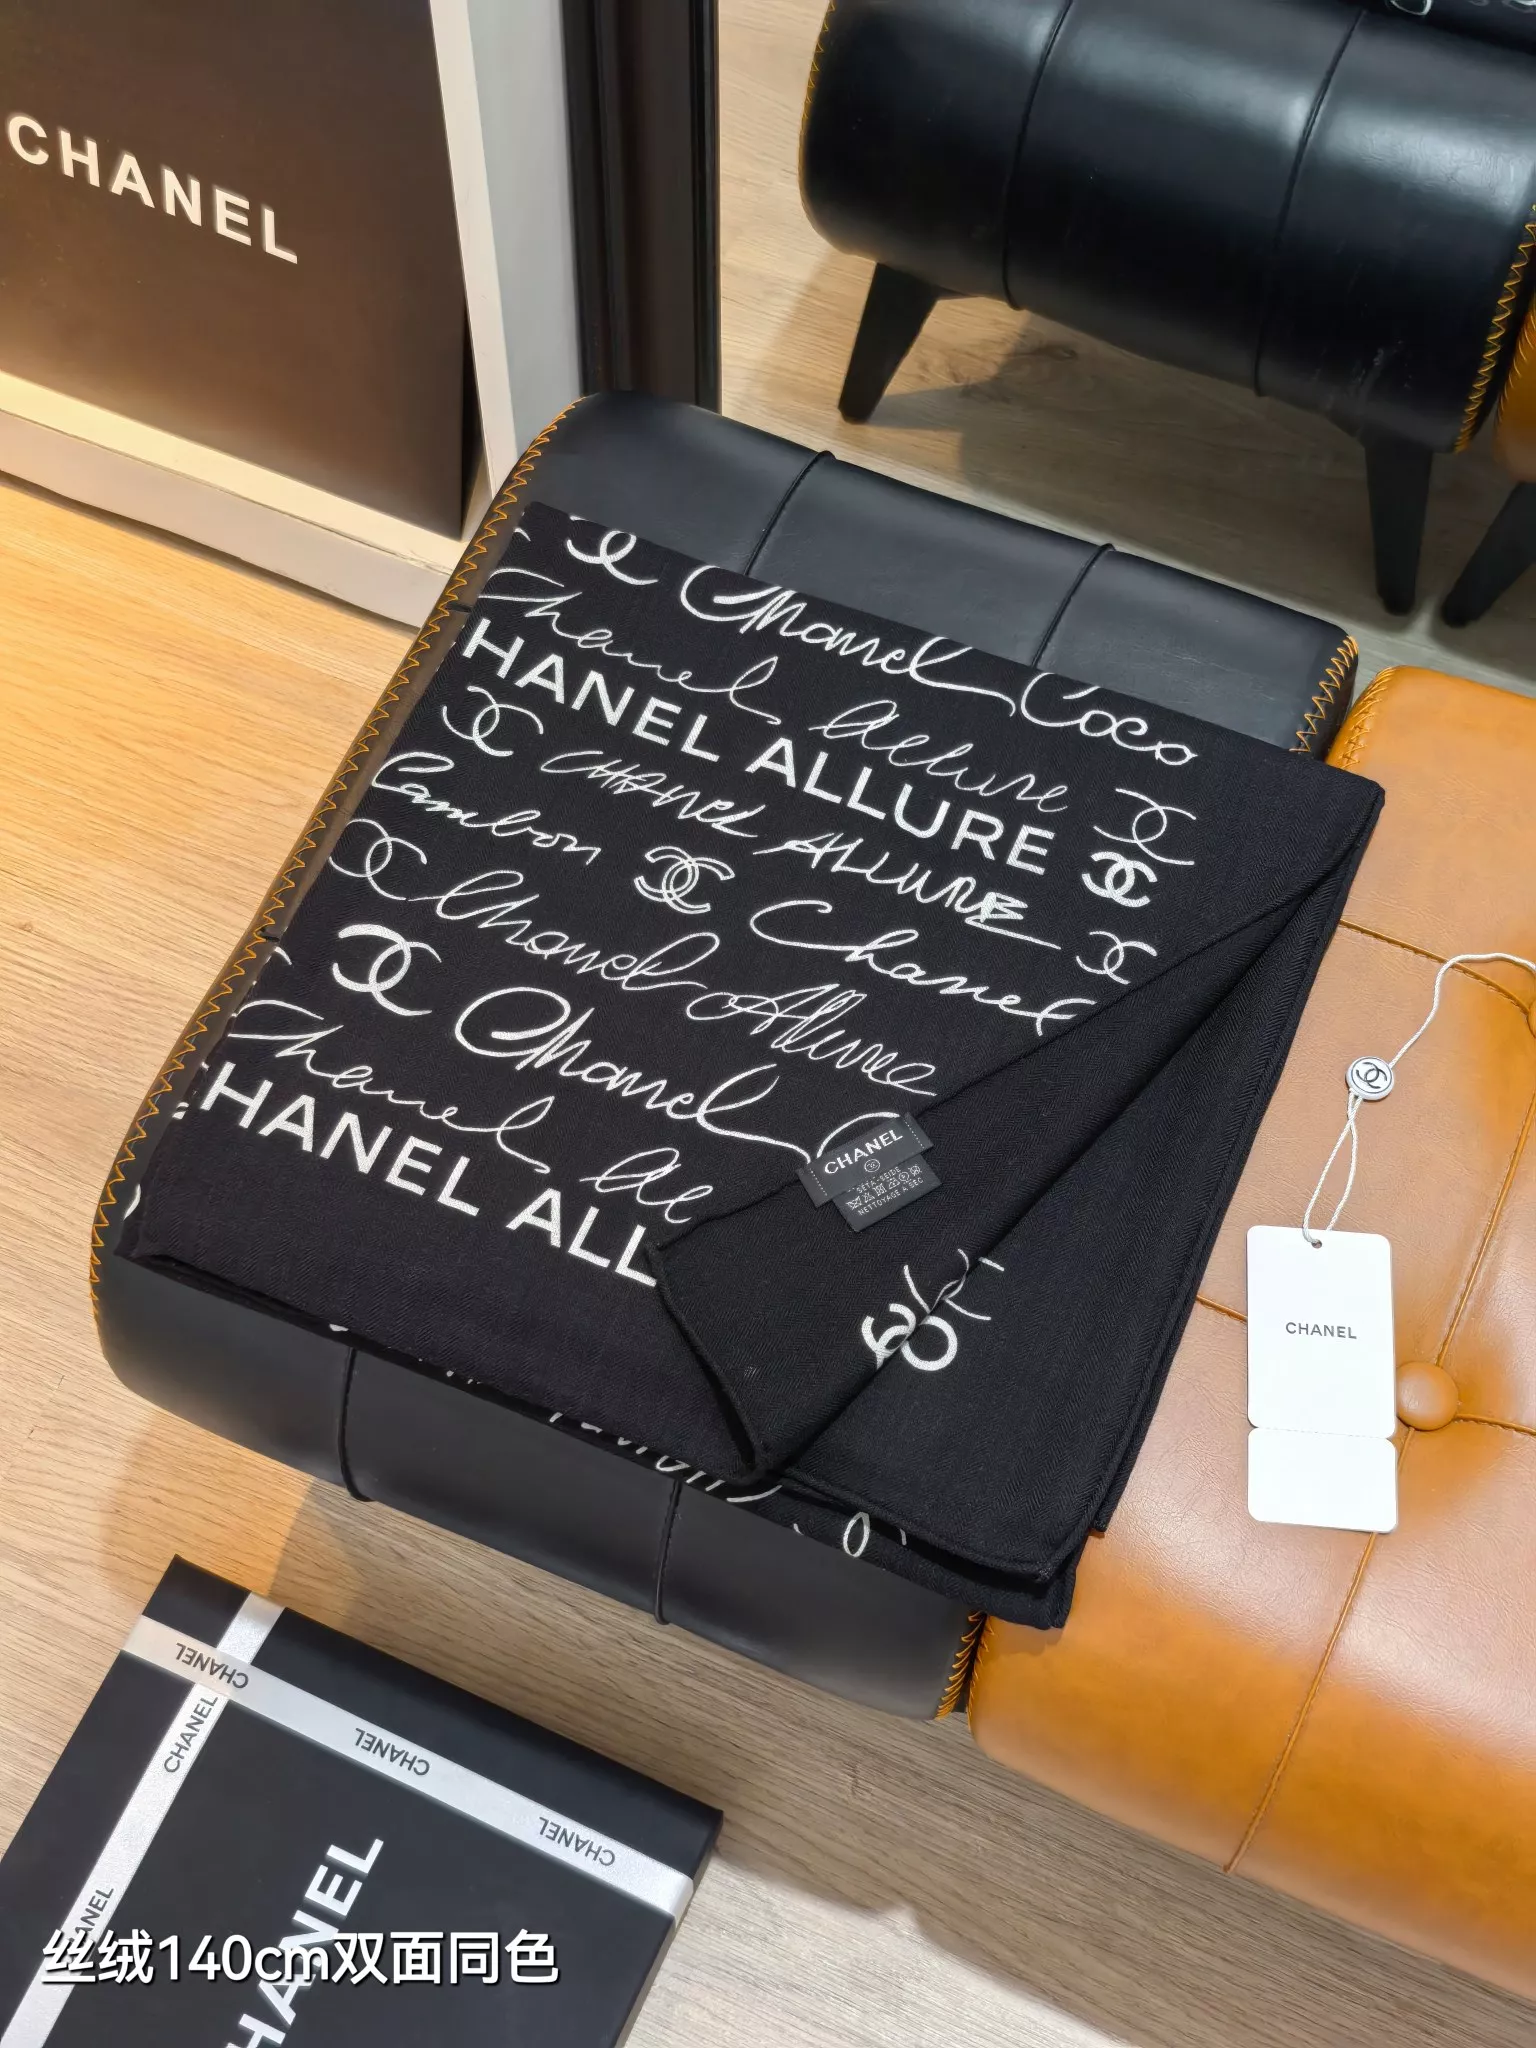 CHANEL
Chanel Coco
Chanel Allure
CHANEL ALLURE
CHANEL ALLURE
Cambon
Chanel
Chanel Allure
Chanel
Chanel
CHANEL ALL
CHANEL
NETTOYAGE A SEC
CHANEL
CHANEL
CHANEL
CHANEL
CHANEL
ANEL
HANEL
丝绒140cm双面同色